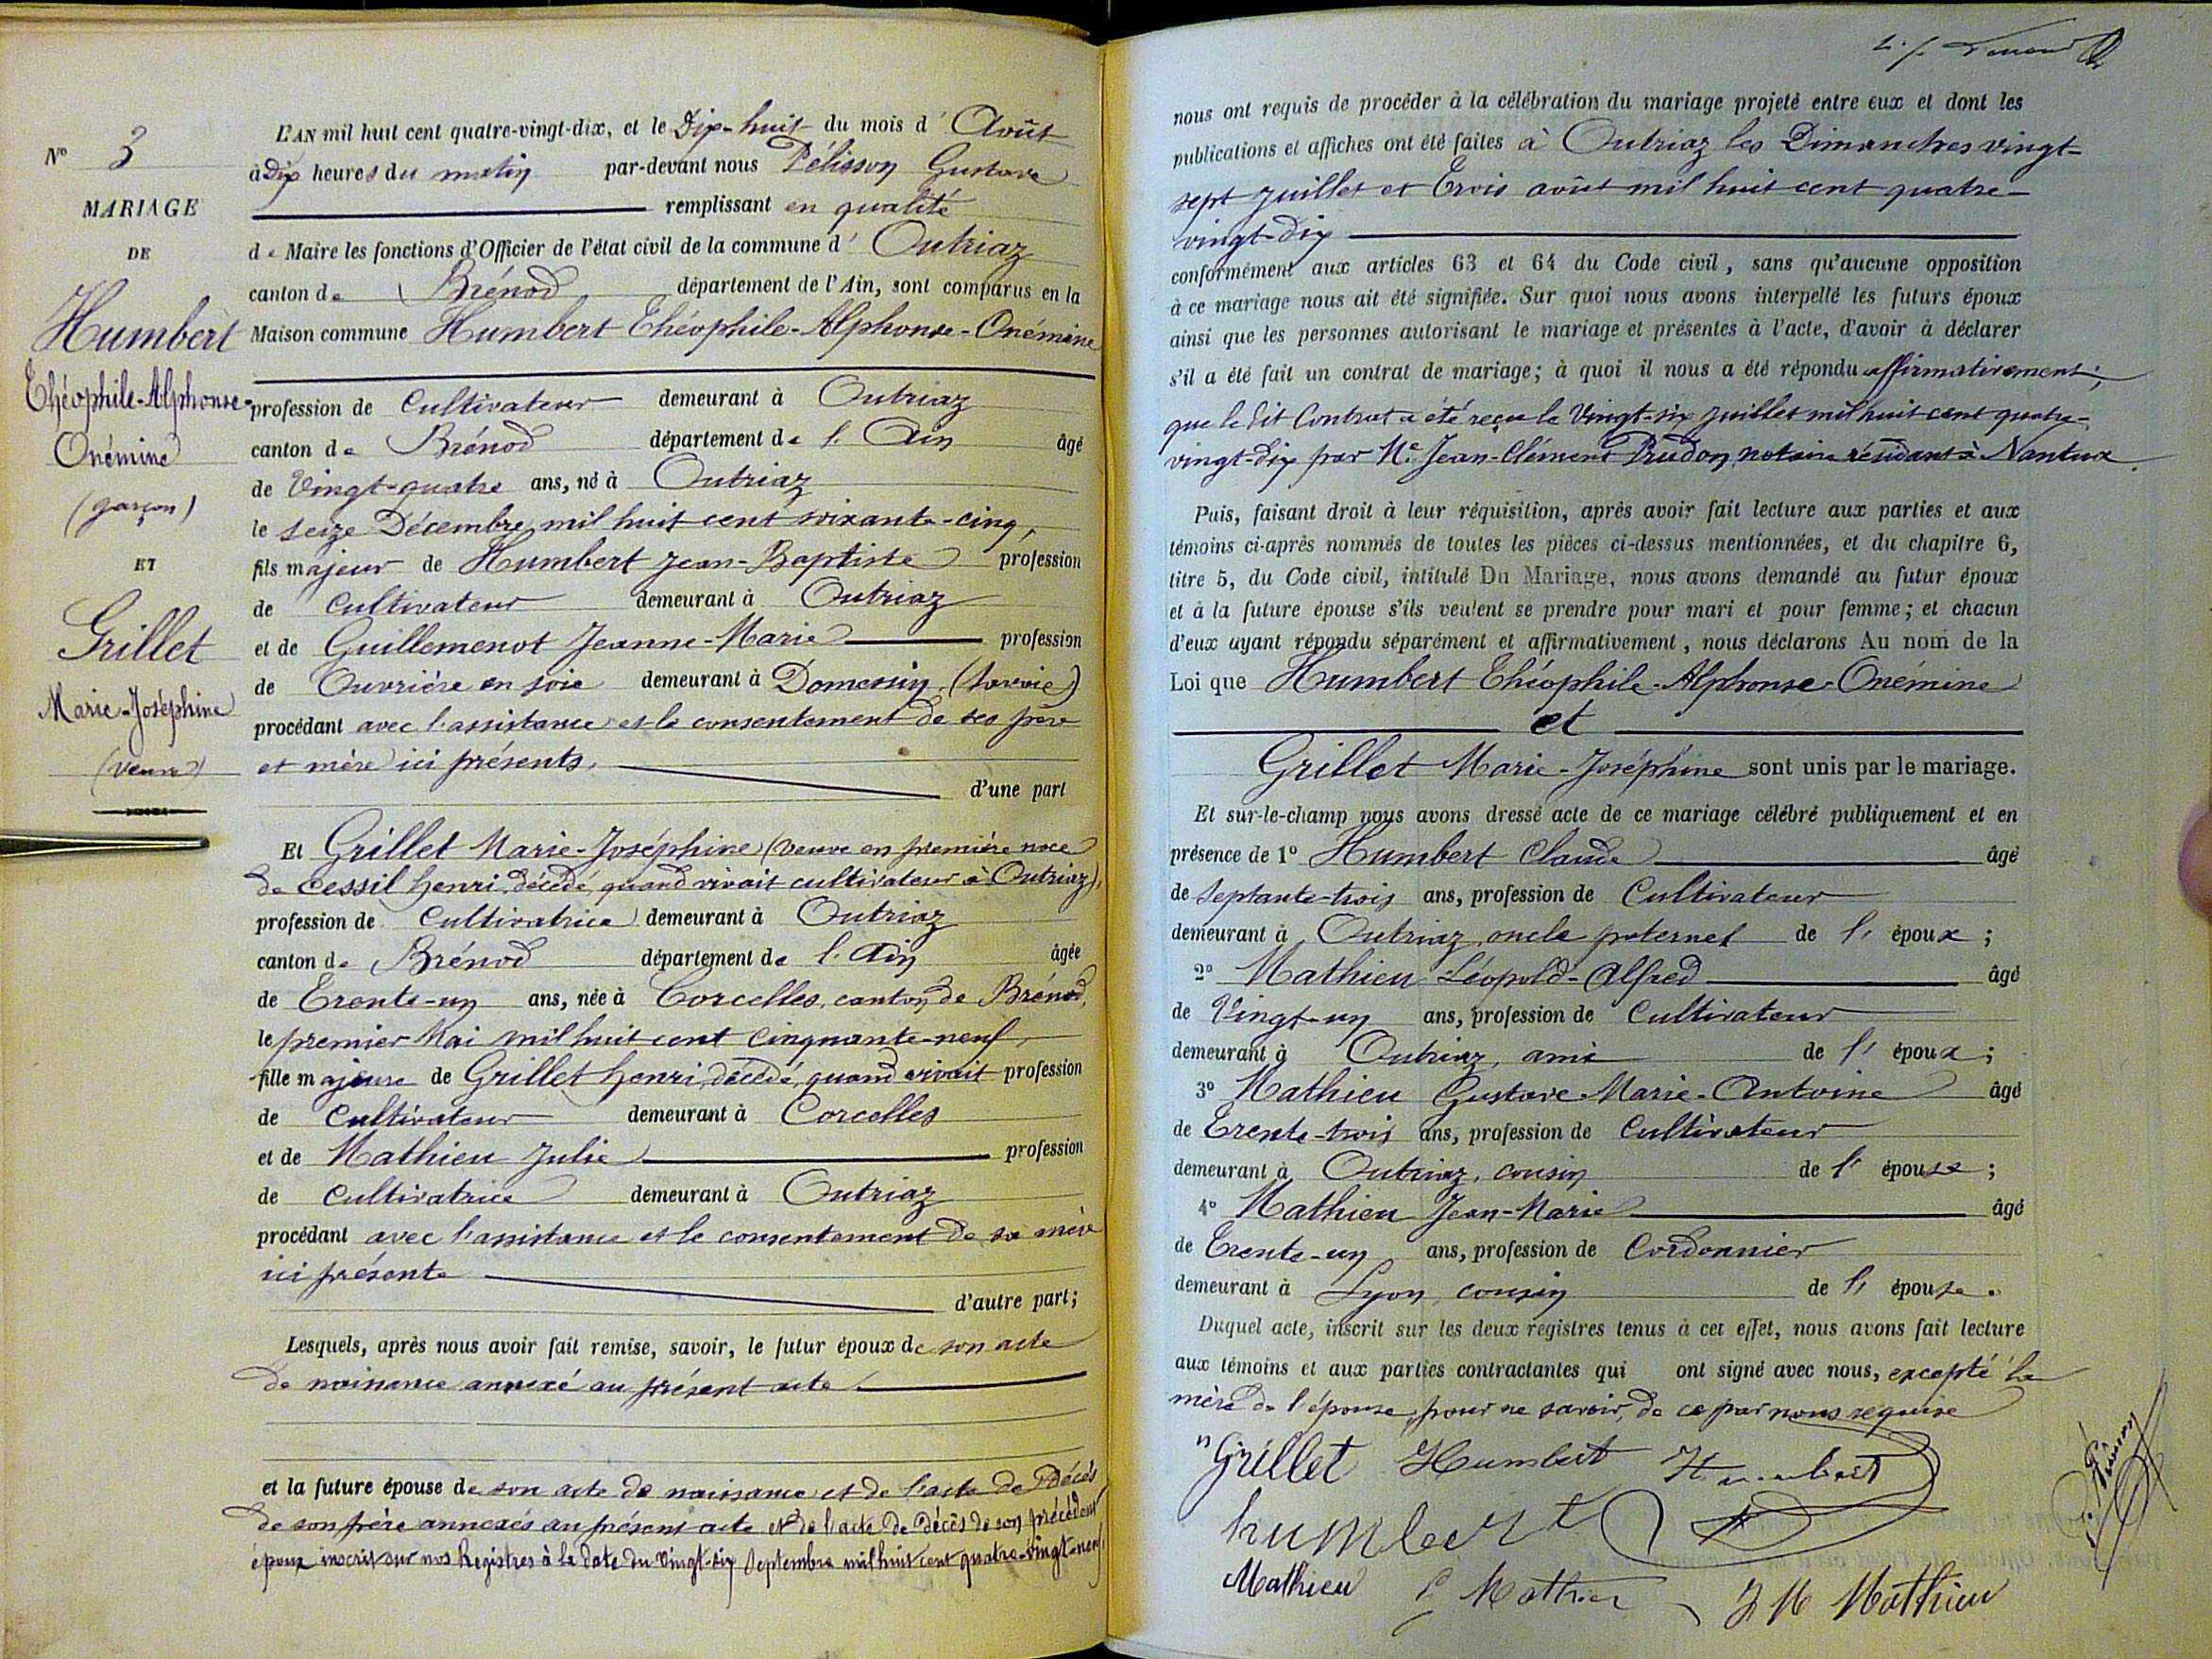 N° 3
MARIAGE
DE
Humbert
Théophile-Alphonse-
Onémine
(garçon)
ET
Grillet
Marie-Joséphine
(veuve)
L'AN mil huit cent quatre-vingt-dix, et le Dix-huit du mois d' Août
à Dix heures du matin par-devant nous Pélisson Gustave
remplissant en qualité
de Maire les fonctions d'Officier de l'état civil de la commune d' Outriaz
canton de Brénod département de l'Ain, sont comparus en la
Maison commune Humbert Théophile-Alphonse-Onémine
profession de Cultivateur demeurant à Outriaz
canton de Brénod département de l'Ain âgé
de Vingt-quatre ans, né à Outriaz
le seize Décembre mil huit cent soixante-cinq,
fils majeur de Humbert Jean-Baptiste profession
de Cultivateur demeurant à Outriaz
et de Guillemenot Jeanne-Marie profession
de Ouvrière en soie demeurant à Domessin (Savoie)
procédant avec l'assistance et le consentement de ses père
et mère ici présents,
d'une part
Et Grillet Marie-Joséphine (veuve en première noce
de Cessil Henri, décédé, quand vivait cultivateur à Outriaz),
profession de Cultivatrice demeurant à Outriaz
canton de Brénod département de l'Ain âgée
de Trente-un ans, née à Corcelles, canton de Brénod,
le premier Mai mil huit cent cinquante-neuf,
fille majeure de Grillet Henri, décédé, quand vivait profession
de Cultivateur demeurant à Corcelles
et de Mathieu Julie profession
de Cultivatrice demeurant à Outriaz
procédant avec l'assistance et le consentement de sa mère
ici présente
d'autre part;
Lesquels, après nous avoir fait remise, savoir, le futur époux de son acte
de naissance annexé au présent acte
et la future épouse de son acte de naissance et de l'acte de Décès
de son père annexés au présent acte et de l'acte de décès de son précédent
époux inscrit sur nos Registres à la date du Vingt-six Septembre mil huit cent quatre-vingt-neuf,
nous ont requis de procéder à la célébration du mariage projeté entre eux et dont les
publications et affiches ont été faites à Outriaz les Dimanches vingt-
sept juillet et Trois août mil huit cent quatre-
vingt-dix
conformément aux articles 63 et 64 du Code civil, sans qu'aucune opposition
à ce mariage nous ait été signifiée. Sur quoi nous avons interpellé les futurs époux
ainsi que les personnes autorisant le mariage et présentes à l'acte, d'avoir à déclarer
s'il a été fait un contrat de mariage; à quoi il nous a été répondu affirmativement;
que le dit Contrat a été reçu le Vingt-six juillet mil huit cent quatre-
vingt-dix par Me. Jean-Clément Prudon, notaire résidant à Nantua.
Puis, faisant droit à leur réquisition, après avoir fait lecture aux parties et aux
témoins ci-après nommés de toutes les pièces ci-dessus mentionnées, et du chapitre 6,
titre 5, du Code civil, intitulé Du Mariage, nous avons demandé au futur époux
et à la future épouse s'ils veulent se prendre pour mari et pour femme; et chacun
d'eux ayant répondu séparément et affirmativement, nous déclarons Au nom de la
Loi que Humbert Théophile-Alphonse-Onémine
et
Grillet Marie-Joséphine sont unis par le mariage.
Et sur-le-champ nous avons dressé acte de ce mariage célébré publiquement et en
présence de 1° Humbert Claude âgé
de septante-trois ans, profession de Cultivateur
demeurant à Outriaz, oncle paternel de l' époux;
2° Mathieu Léopold-Alfred âgé
de Vingt-un ans, profession de Cultivateur
demeurant à Outriaz, ami de l' époux;
3° Mathieu Gustave-Marie-Antoine âgé
de Trente-trois ans, profession de Cultivateur
demeurant à Outriaz, cousin de l' épouse;
4° Mathieu Jean-Marie âgé
de Trente-un ans, profession de Cordonnier
demeurant à Lyon, cousin de l' épouse.
Duquel acte, inscrit sur les deux registres tenus à cet effet, nous avons fait lecture
aux témoins et aux parties contractantes qui ont signé avec nous, excepté la
mère de l'épouse, pour ne savoir, de ce par nous requise
Grillet Humbert Humbert
humbert
Mathieu Mathieu J M Mathieu